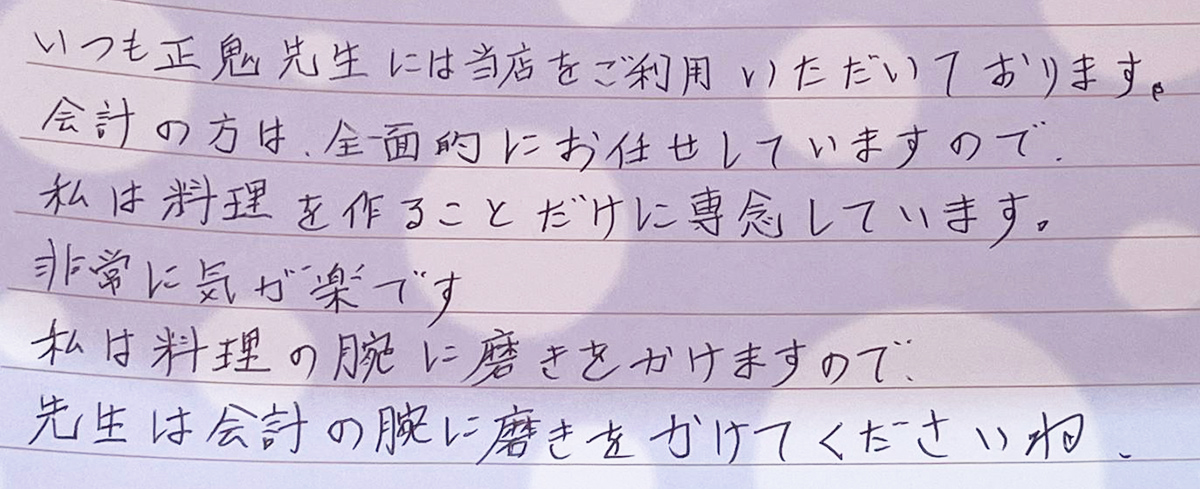 いつも正鬼先生には当店をご利用いただいております。
会計の方は、全面的にお任せしていますので、
私は料理を作ることだけに専念しています。
非常に気が楽です
私は料理の腕に磨きをかけますので、
先生は会計の腕に磨きをかけてくださいね、